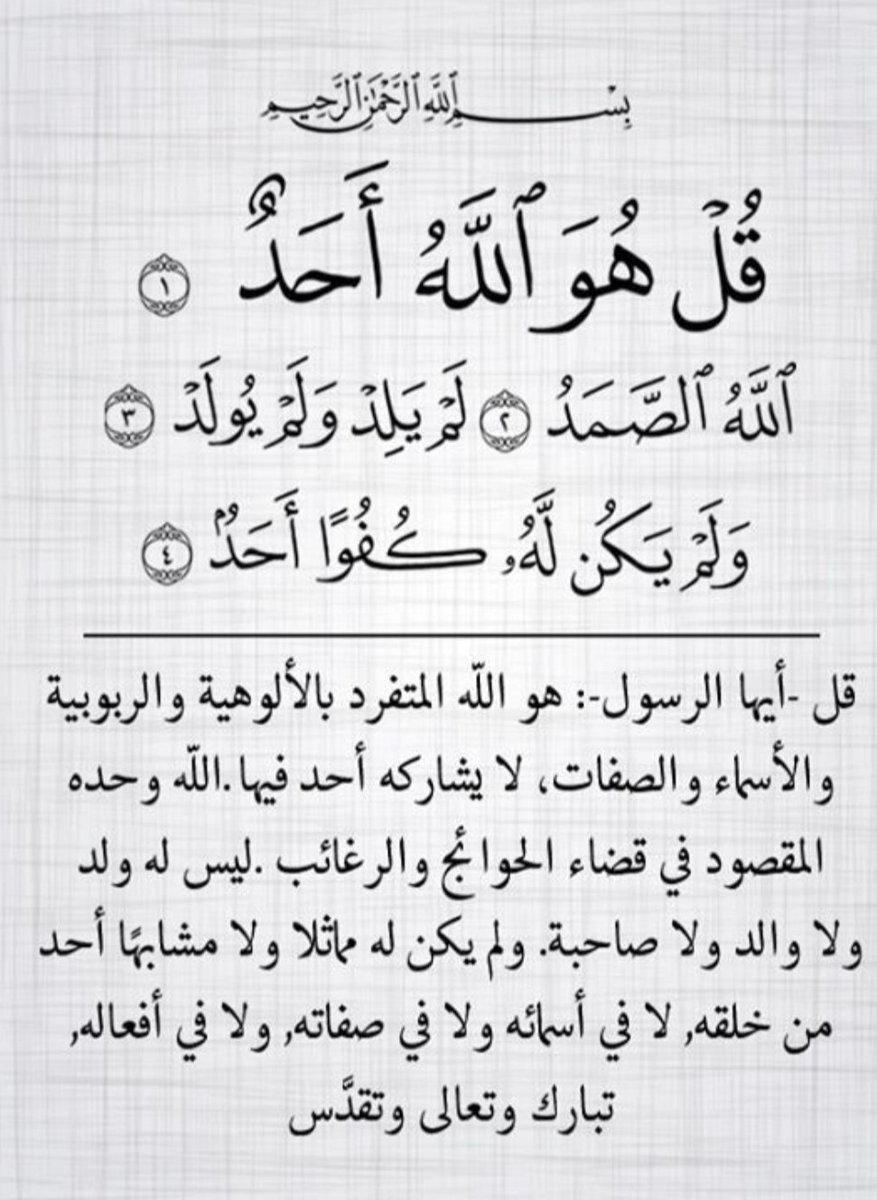 بِسْمِ ٱللَّهِ ٱلرَّحْمَٰنِ ٱلرَّحِيمِ
قُلْ هُوَ ٱللَّهُ أَحَدٌ ١
ٱللَّهُ ٱلصَّمَدُ ٢ لَمْ يَلِدْ وَلَمْ يُولَدْ ٣
وَلَمْ يَكُن لَّهُۥ كُفُوًا أَحَدٌۢ ٤
قل -أيها الرسول-: هو اللّه المتفرد بالألوهية والربوبية
والأسماء والصفات، لا يشاركه أحد فيها.اللّه وحده
المقصود في قضاء الحوائج والرغائب .ليس له ولد
ولا والد ولا صاحبة. ولم يكن له مماثلا ولا مشابهًا أحد
من خلقه, لا في أسمائه ولا في صفاته, ولا في أفعاله,
تبارك وتعالى وتقدَّس